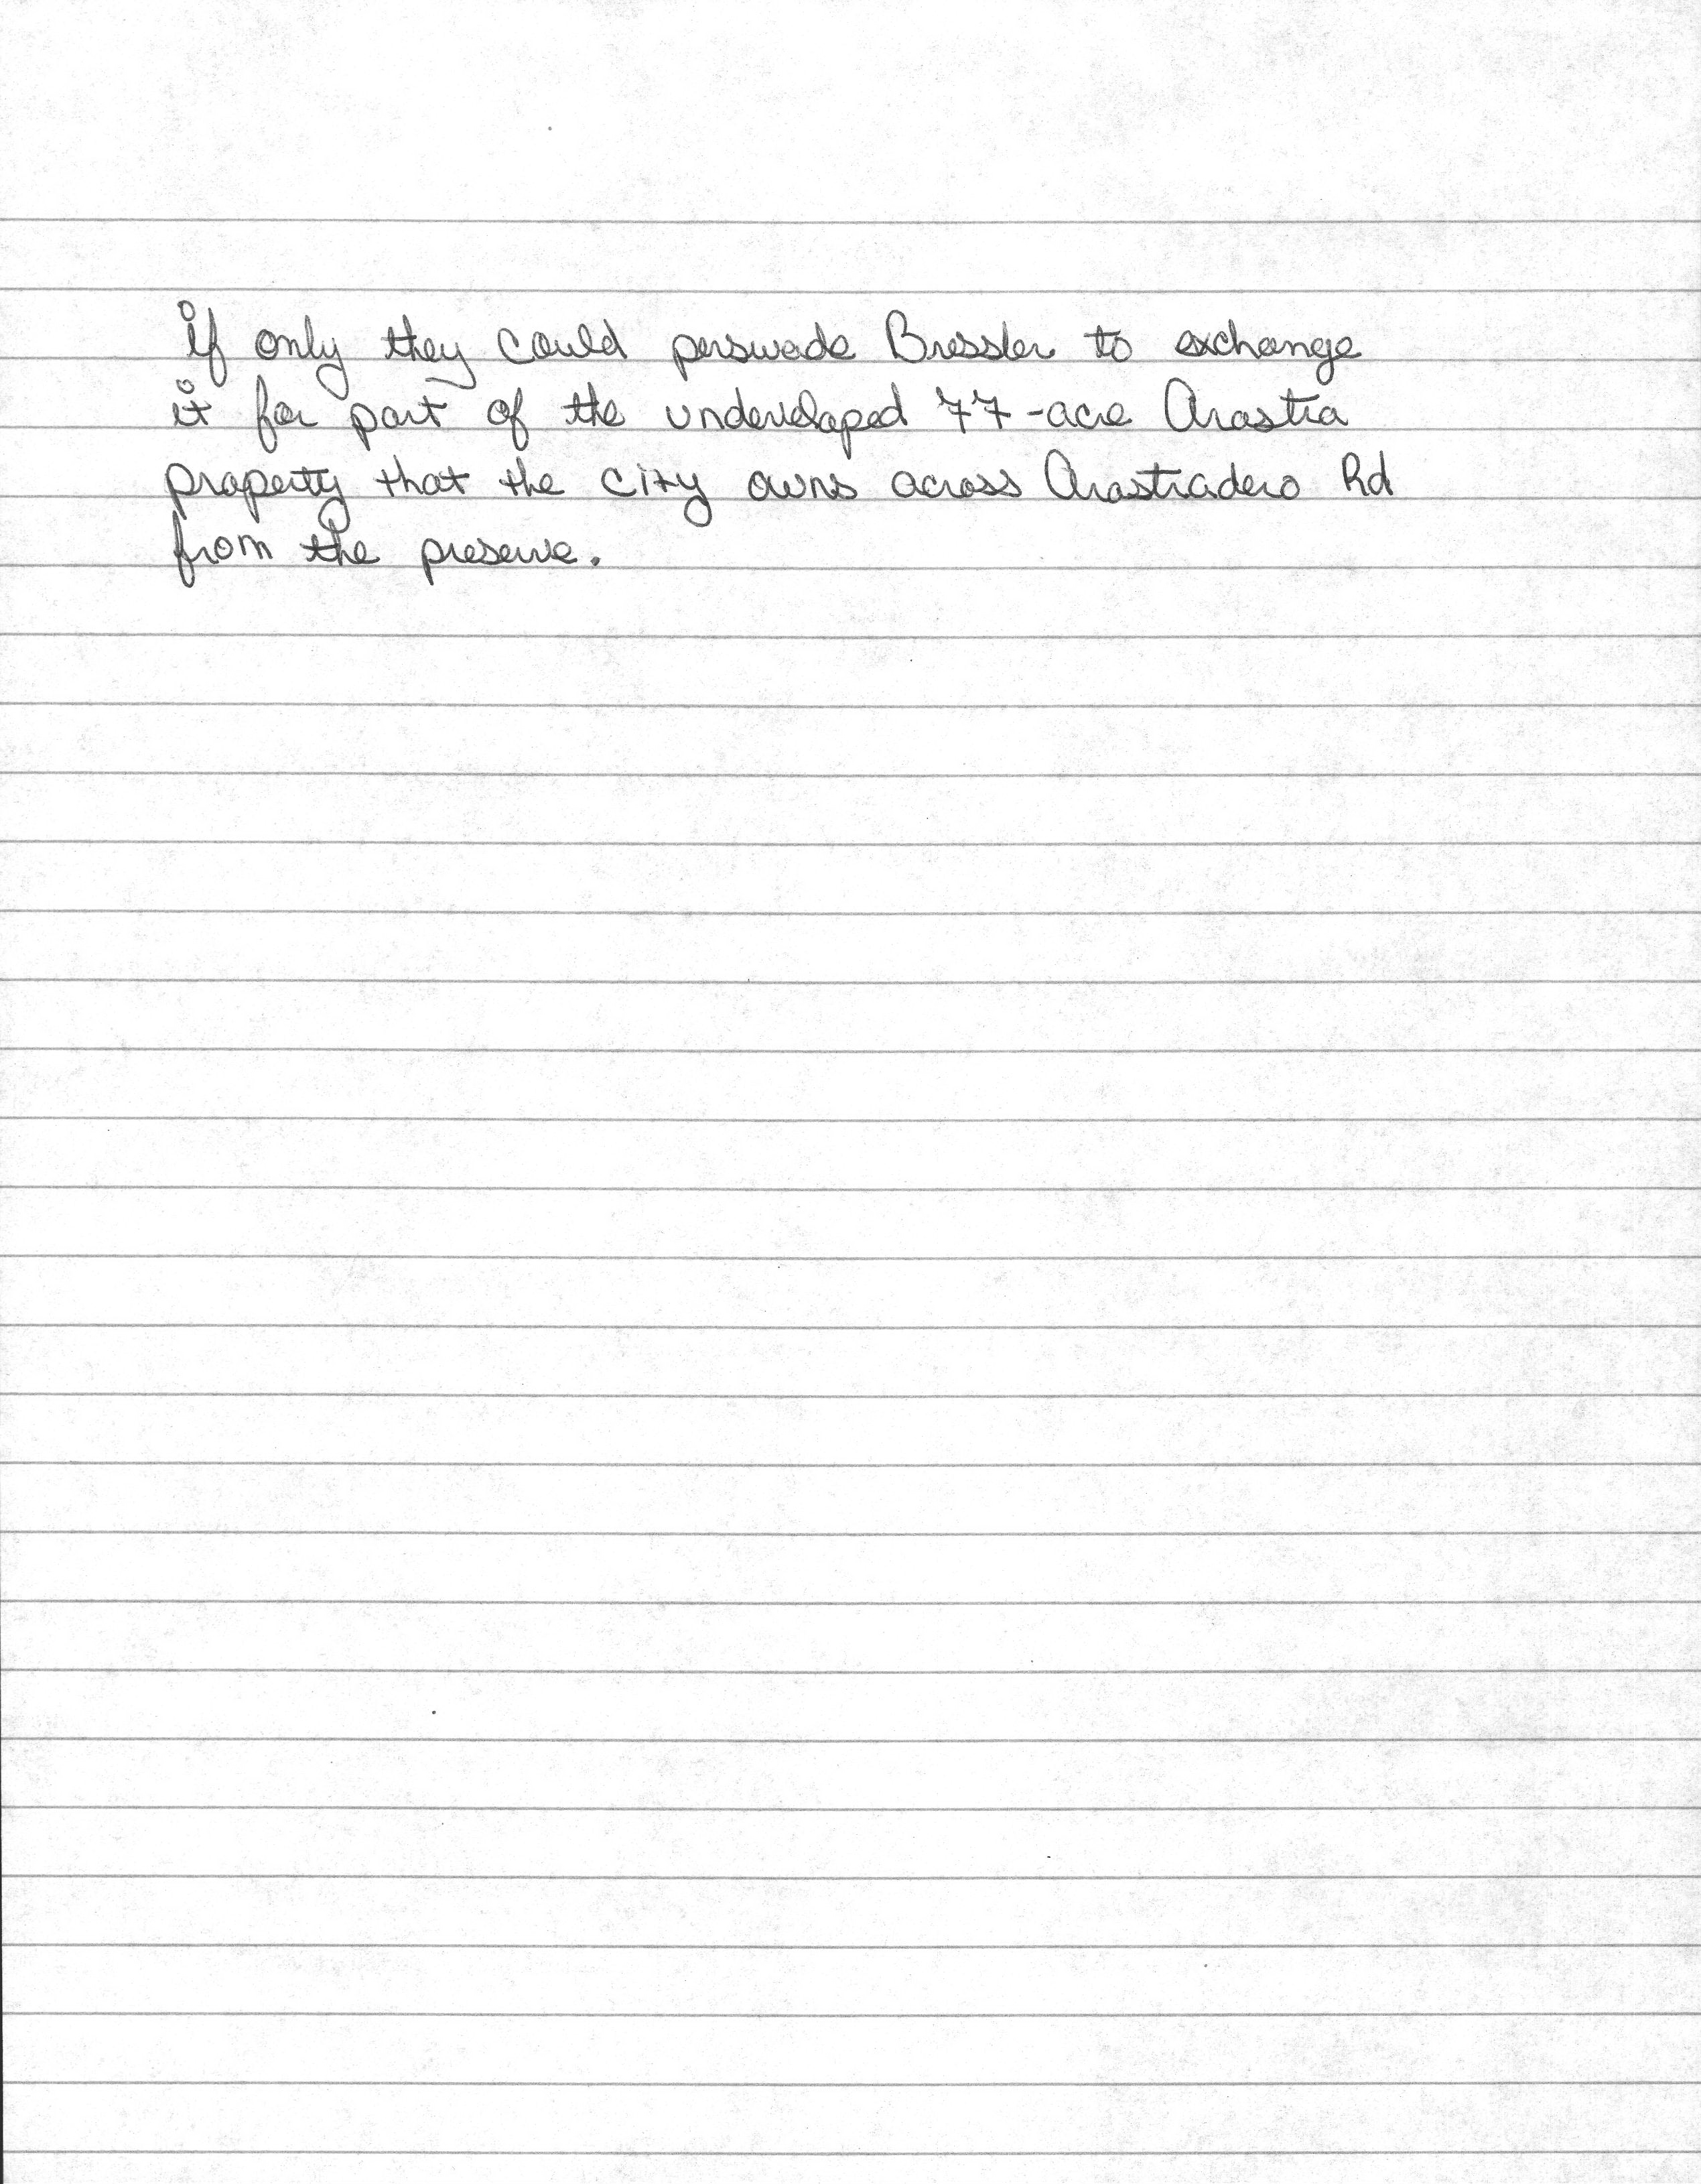 if only they could persuade Bressler to exchange
it for part of the undeveloped 77-acre Arastra
property that the city owns across Arastradero Rd
from the preserve.